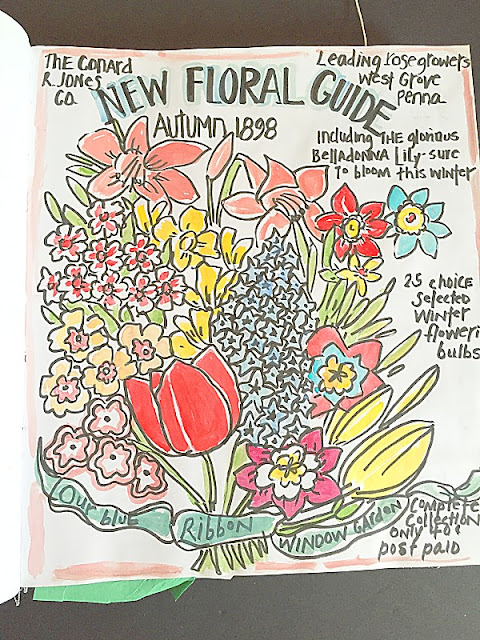 THE Conard
R. Jones
Co.
NEW FLORAL GUIDE
AUTUMN 1898
Leading rosegrowers
West Grove
Penna
Including THE glorious
BellaDONNA lily-sure
To bloom this winter
25 choice
selected
winter
floweri
bulbs
Our blue
Ribbon
WINDOW GARDEN
Complete
Collection
only 40¢
post paid